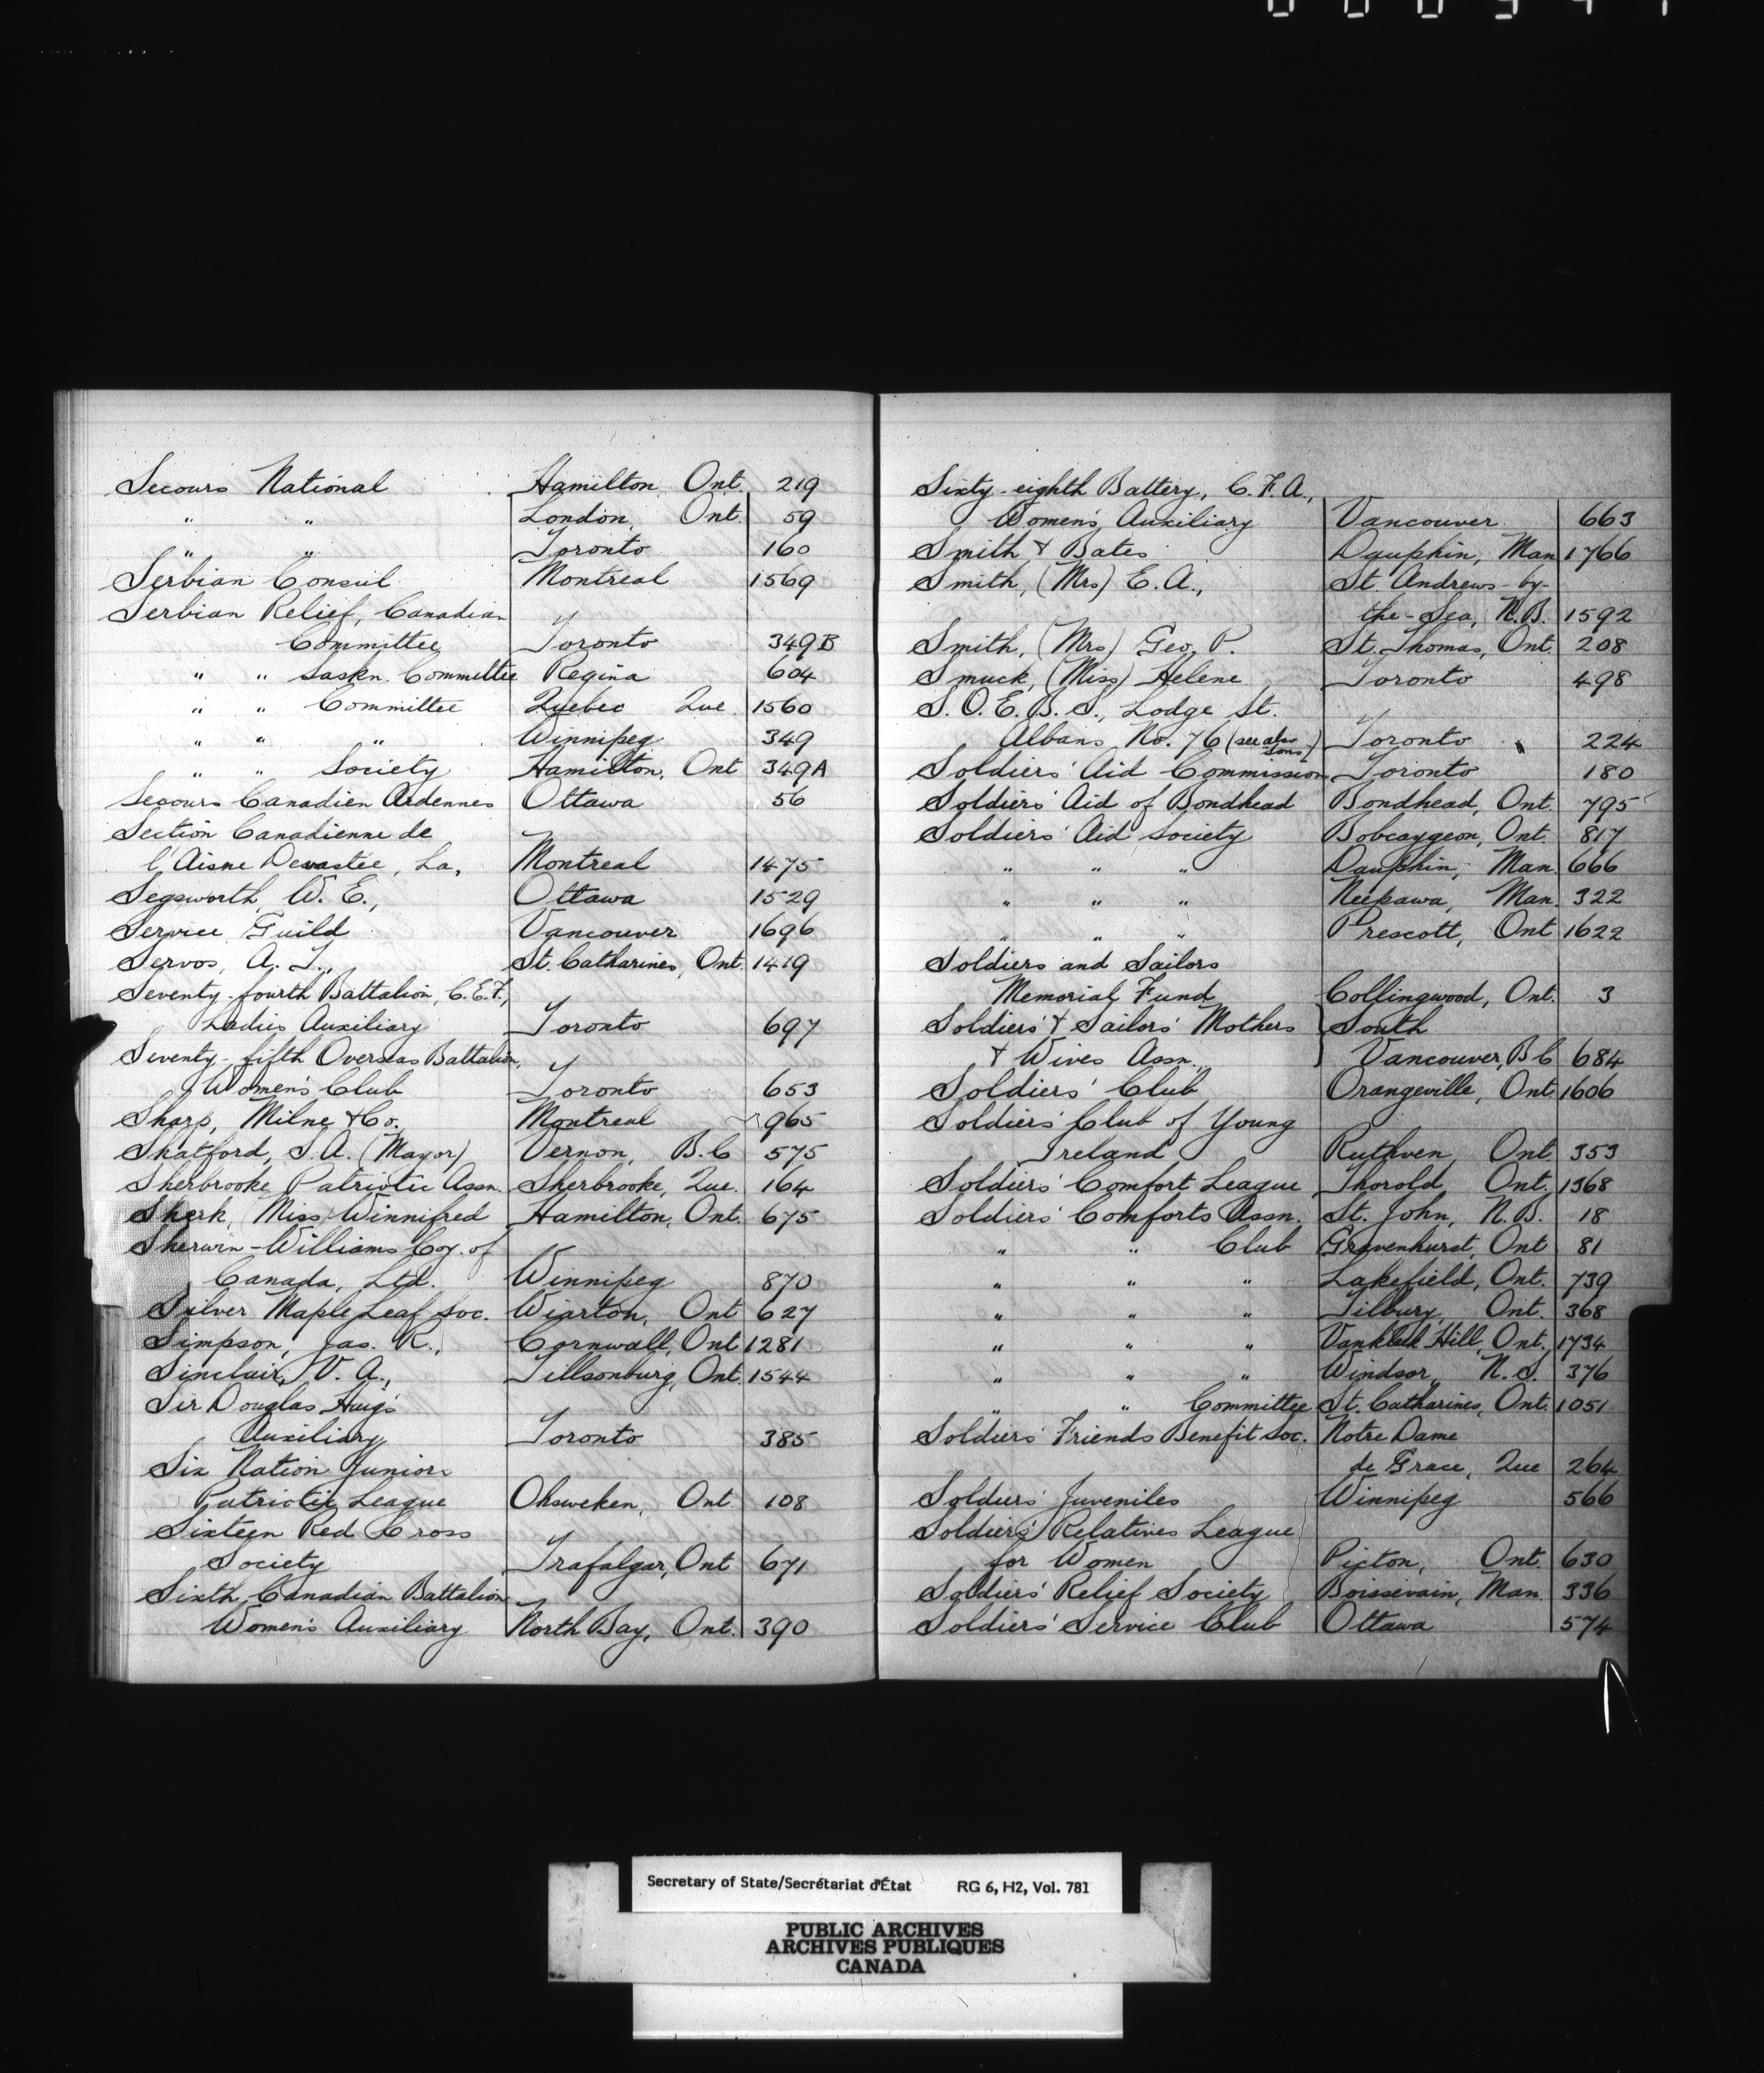 Secours National Hamilton, Ont. 219
" " London, Ont. 59
" " Toronto 160
Serbian Consul Montreal 1569
Serbian Relief, Canadian
Committee Toronto 349B
" " Saskn. Committee Regina 604
" " Committee Quebec Que. 1560
" " " Winnipeg 349
" " Society Hamilton, Ont 349A
Secours Canadien Ardennes Ottawa 56
Section Canadienne de
l'Aisne Devastée, La, Montreal 1475
Segsworth, W. E., Ottawa 1529
Service Guild Vancouver 1696
Servos, A. T., St. Catharines, Ont. 1419
Seventy-fourth Battalion, C.E.F.,
Ladies Auxiliary Toronto 697
Seventy-fifth Overseas Battalion,
Women's Club Toronto 653
Sharp, Milne & Co. Montreal 965
Shatford, S.A. (Mayor) Vernon, B.C 575
Sherbrooke Patriotic Assn. Sherbrooke, Que. 164
Sherk, (Miss) Winnifred Hamilton, Ont. 675
Sherwin-Williams Coy. of
Canada, Ltd. Winnipeg 870
Silver Maple Leaf Soc. Wiarton, Ont 627
Simpson, Jas. R., Cornwall, Ont 1281
Sinclair, V. A., Tillsonburg, Ont. 1544
Sir Douglas Haig's
Auxiliary Toronto 385
Six Nation Junior
Patriotic League Ohsweken, Ont. 108
Sixteen Red Cross
Society Trafalgar, Ont 671
Sixth Canadian Battalion
Women's Auxiliary North Bay, Ont. 390
Sixty-eighth Battery, C.F.A.,
Women's Auxiliary Vancouver 663
Smith & Bates Dauphin, Man 1766
Smith, (Mrs) E. A., St. Andrews-by-
the-Sea, N.B. 1592
Smith, (Mrs) Geo. P. St. Thomas, Ont. 208
Smuck, (Miss) Helene Toronto 498
S.O.E.B.S., Lodge St.
Albans No. 76 (see also Sons.) Toronto 224
Soldiers' Aid Commission Toronto 180
Soldiers' Aid of Bondhead Bondhead, Ont. 795
Soldiers' Aid Society Bobcaygeon, Ont. 817
" " " Dauphin, Man. 666
" " " Neepawa, Man. 322
" " " Prescott, Ont 1622
Soldiers and Sailors
Memorial Fund Collingwood, Ont. 3
Soldiers' & Sailors' Mothers South
& Wives Assn., Vancouver, B C 684
Soldiers' Club Orangeville, Ont 1606
Soldiers' Club of Young
Ireland Ruthven, Ont 353
Soldiers' Comfort League Thorold Ont. 1368
Soldiers' Comforts Assn. St. John, N.B. 18
" " Club Gravenhurst, Ont 81
" " " Lakefield, Ont. 739
" " " Tilbury, Ont. 368
" " " Vankleek Hill, Ont. 1734
" " " Windsor, N.S. 376
" " Committee St. Catharines, Ont. 1051
Soldiers' Friends Benefit Soc. Notre Dame
de Grace, Que 264
Soldiers' Juveniles Winnipeg 566
Soldiers' Relatives League
for Women Picton, Ont. 630
Soldiers' Relief Society Boissevain, Man. 336
Soldiers' Service Club Ottawa 574
Secretary of State/Secrétariat d'État RG 6, H2, Vol. 781
PUBLIC ARCHIVES
ARCHIVES PUBLIQUES
CANADA